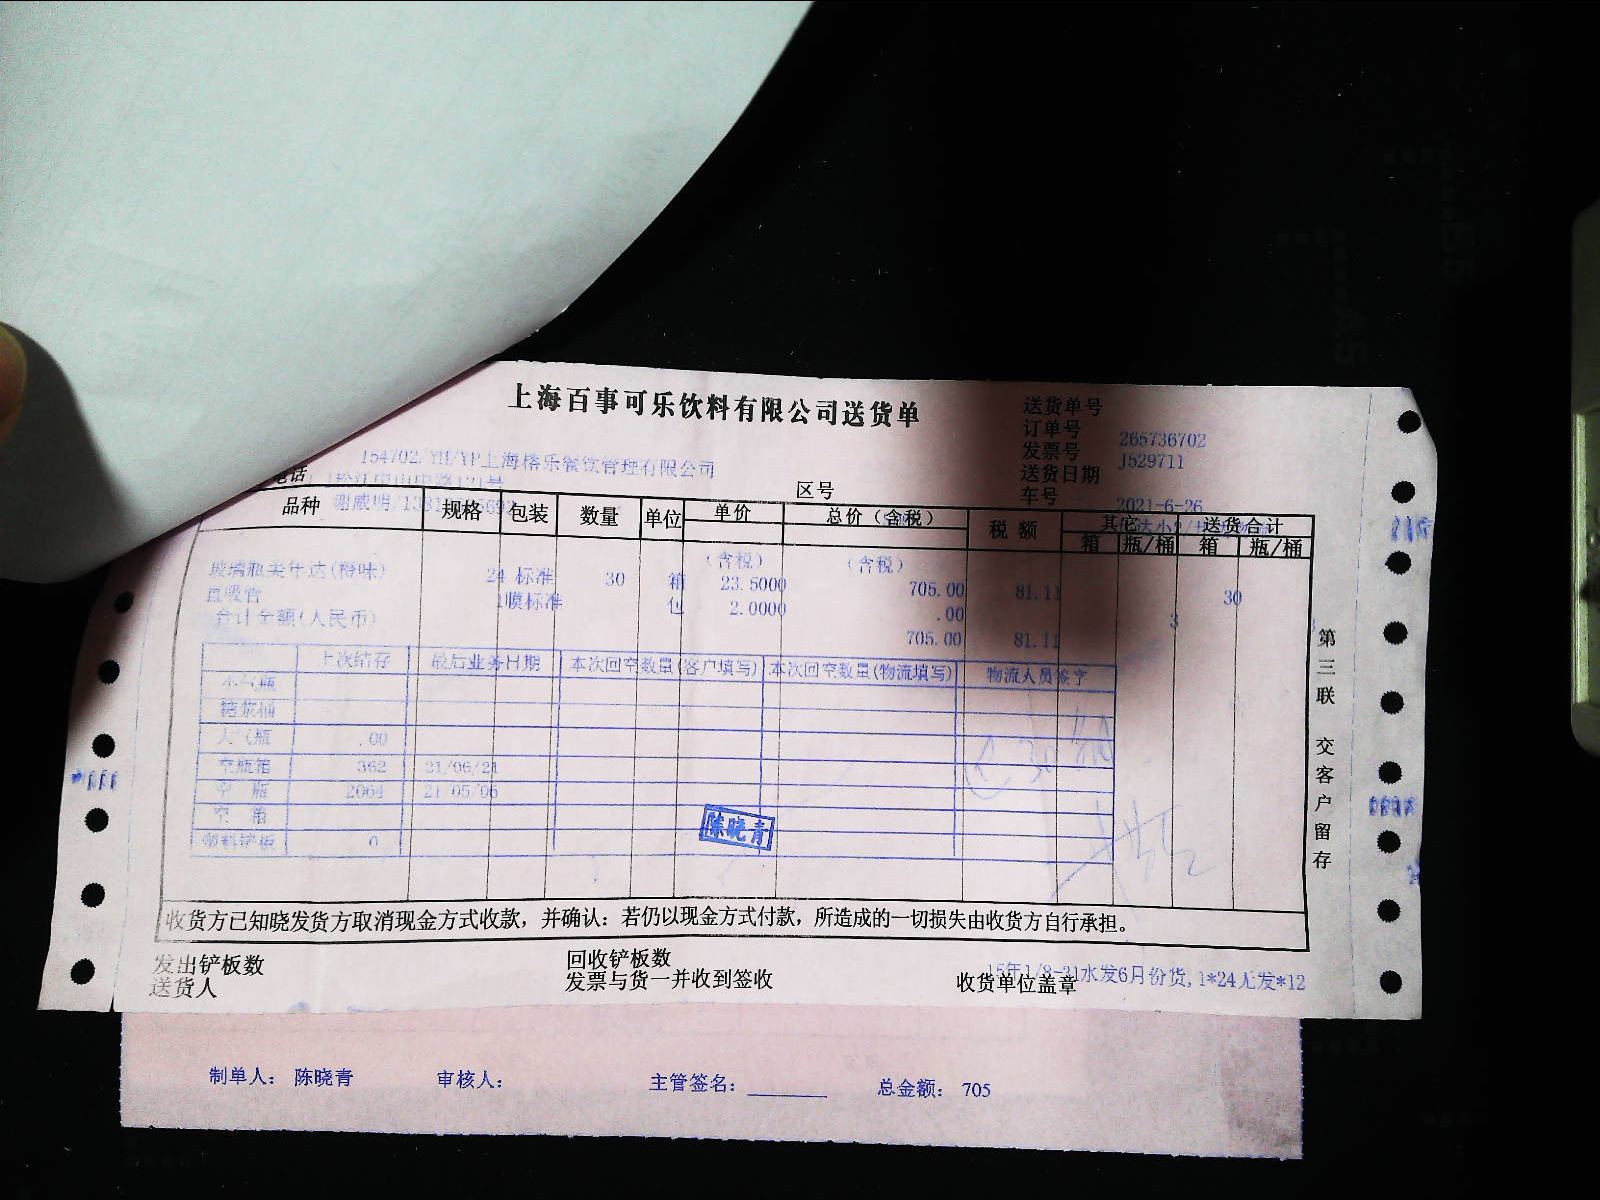 上海百事可乐饮料有限公司送货单
送货单号
订单号 265736702
发票号 J529711
送货日期
车号 2021-6-26
154702/YH/YP上海榕乐餐饮管理有限公司
电话
区号
谢威明
品种 规格 包装 数量 单位 单价 总价(含税) 税额 其它 送货合计
箱 瓶/桶 箱 瓶/桶
(含税) (含税)
玻璃瓶美年达(橙味) 24 标准 30 箱 23.5000 705.00 81.11 30
直吸管 1膜标准 包 2.0000 .00 3
合计金额(人民币) 705.00 81.11
上次结存 最后业务日期 本次回空数量(客户填写) 本次回空数量(物流填写) 物流人员签字
木气瓶
糖浆桶
大气瓶 .00
空瓶箱 362 21/06/21
空瓶 2064 21/05/06
空箱
塑料铲板 0
陈晓青
第三联 交客户留存
收货方已知晓发货方取消现金方式收款，并确认：若仍以现金方式付款，所造成的一切损失由收货方自行承担。
发出铲板数 回收铲板数
送货人 发票与货一并收到签收 收货单位盖章
15年1/8-31水发6月份货,1*24无发*12
制单人： 陈晓青 审核人： 主管签名：________ 总金额： 705